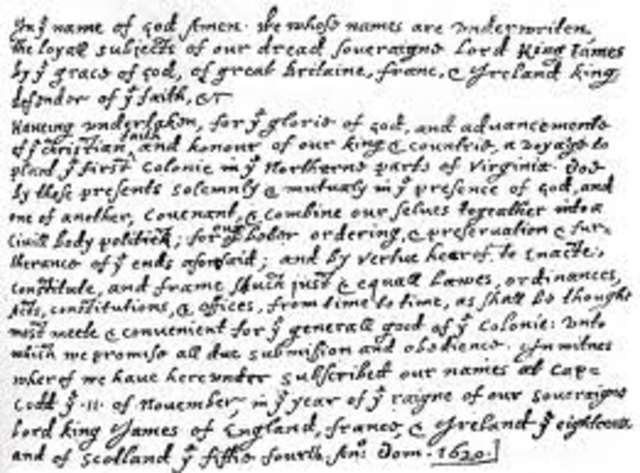 In yͤ name of god Amen. We whose names are underwriten,
the loyall subjects of our dread soveraigne Lord King James
by yͤ grace of god, of great Britaine, franc, & Ireland king,
defender of yͤ faith, &c
Haveing undertaken, for yͤ glorie of god, and advancemente
of yͤ christian faith and honour of our king & countrie, a voyage to
plant yͤ first colonie in yͤ Northerne parts of Virginia. Doe
by these presents solemnly & mutualy in yͤ presence of god, and
one of another, covenant, & combine our selves togeather into a
civill body politick; for our better ordering, & preservation & fur=
therance of yͤ ends aforesaid; and by vertue hearof, to enacte,
constitute, and frame shuch just & equall Lawes, ordinances,
Acts, constitutions, & offices, from time to time, as shall be thought
most meete & convenient for yͤ generall good of yͤ colonie: unto
which we promise all due submission and obedience. In witnes
wherof we have hereunder subscribed our names at Cap=
Codd yͤ .11. of November, in yͤ year of yͤ raigne of our soveraigne
Lord king James of England, france, & Ireland yͤ eighteene
and of scotland yͤ fiftie fourth. Ano: Dom. 1620.]